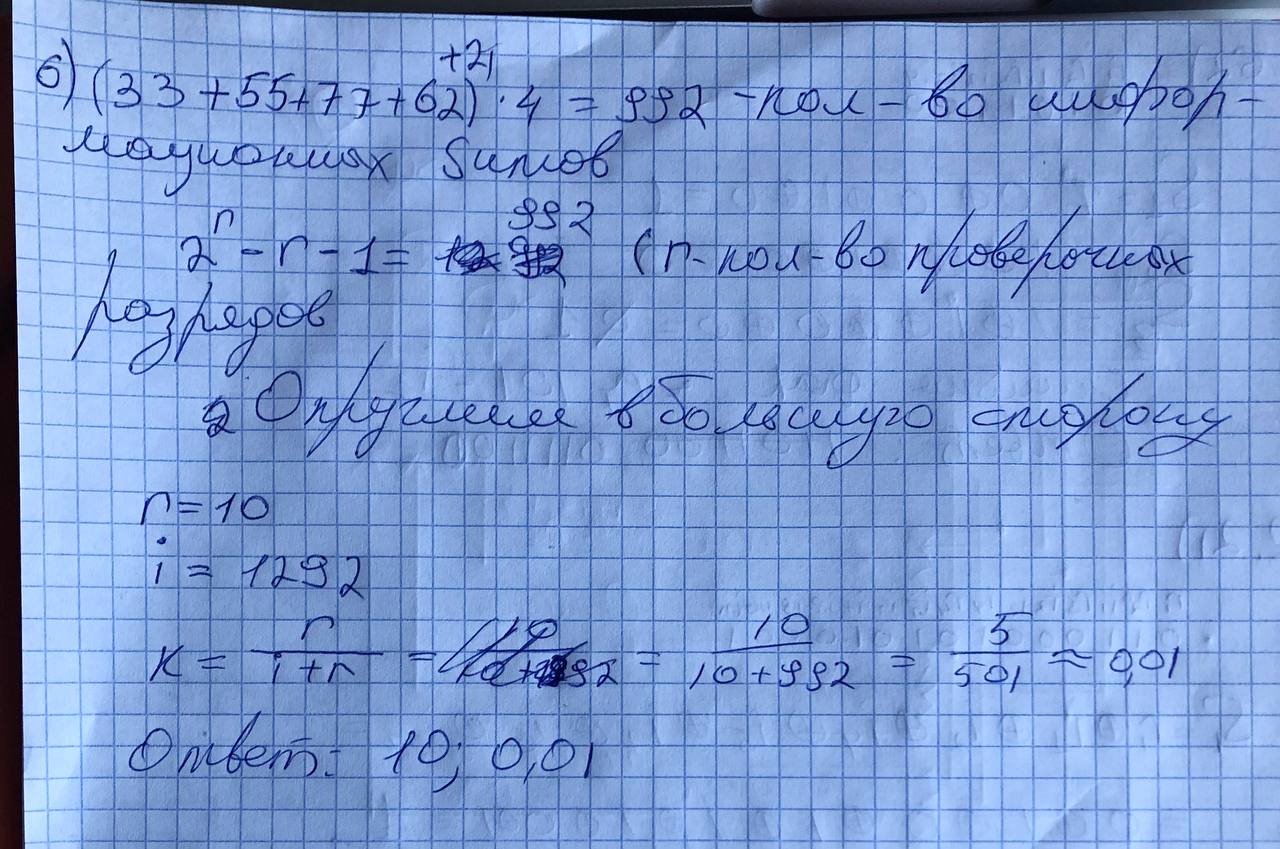 +21
6) (33+55+77+62) · 4 = 992 - кол-во инфор-
мационных битов
992
2^r - r - 1 = (r - кол-во проверочных
разрядов
Округляем в большую сторону
r = 10
i = 1292
K = r/(i+r) = = 10/(10+992) = 5/501 ≈ 0,01
Ответ: 10; 0,01